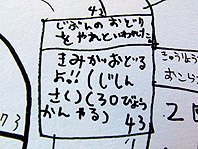 43
じおんの おどり
を やれといわれた。
きみがおどる
よ!!(じしん
さい)(30びょう
かん やる)
43
きゅうよう
おこら
2
73